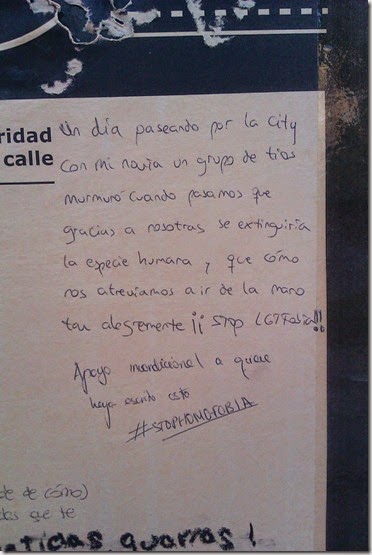 ridad
calle
Un día paseando por la city
con mi novia un grupo de tíos
murmuró cuando pasamos que
gracias a nosotras se extinguiría
la especie humana y que cómo
nos atrevíamos a ir de la mano
tan alegremente ¡¡ STOP LGTFobia!!
Apoyo incondicional a quien
haya escrito esto
#STOPHOMOFOBIA
de de cómo)
que te
guarras!